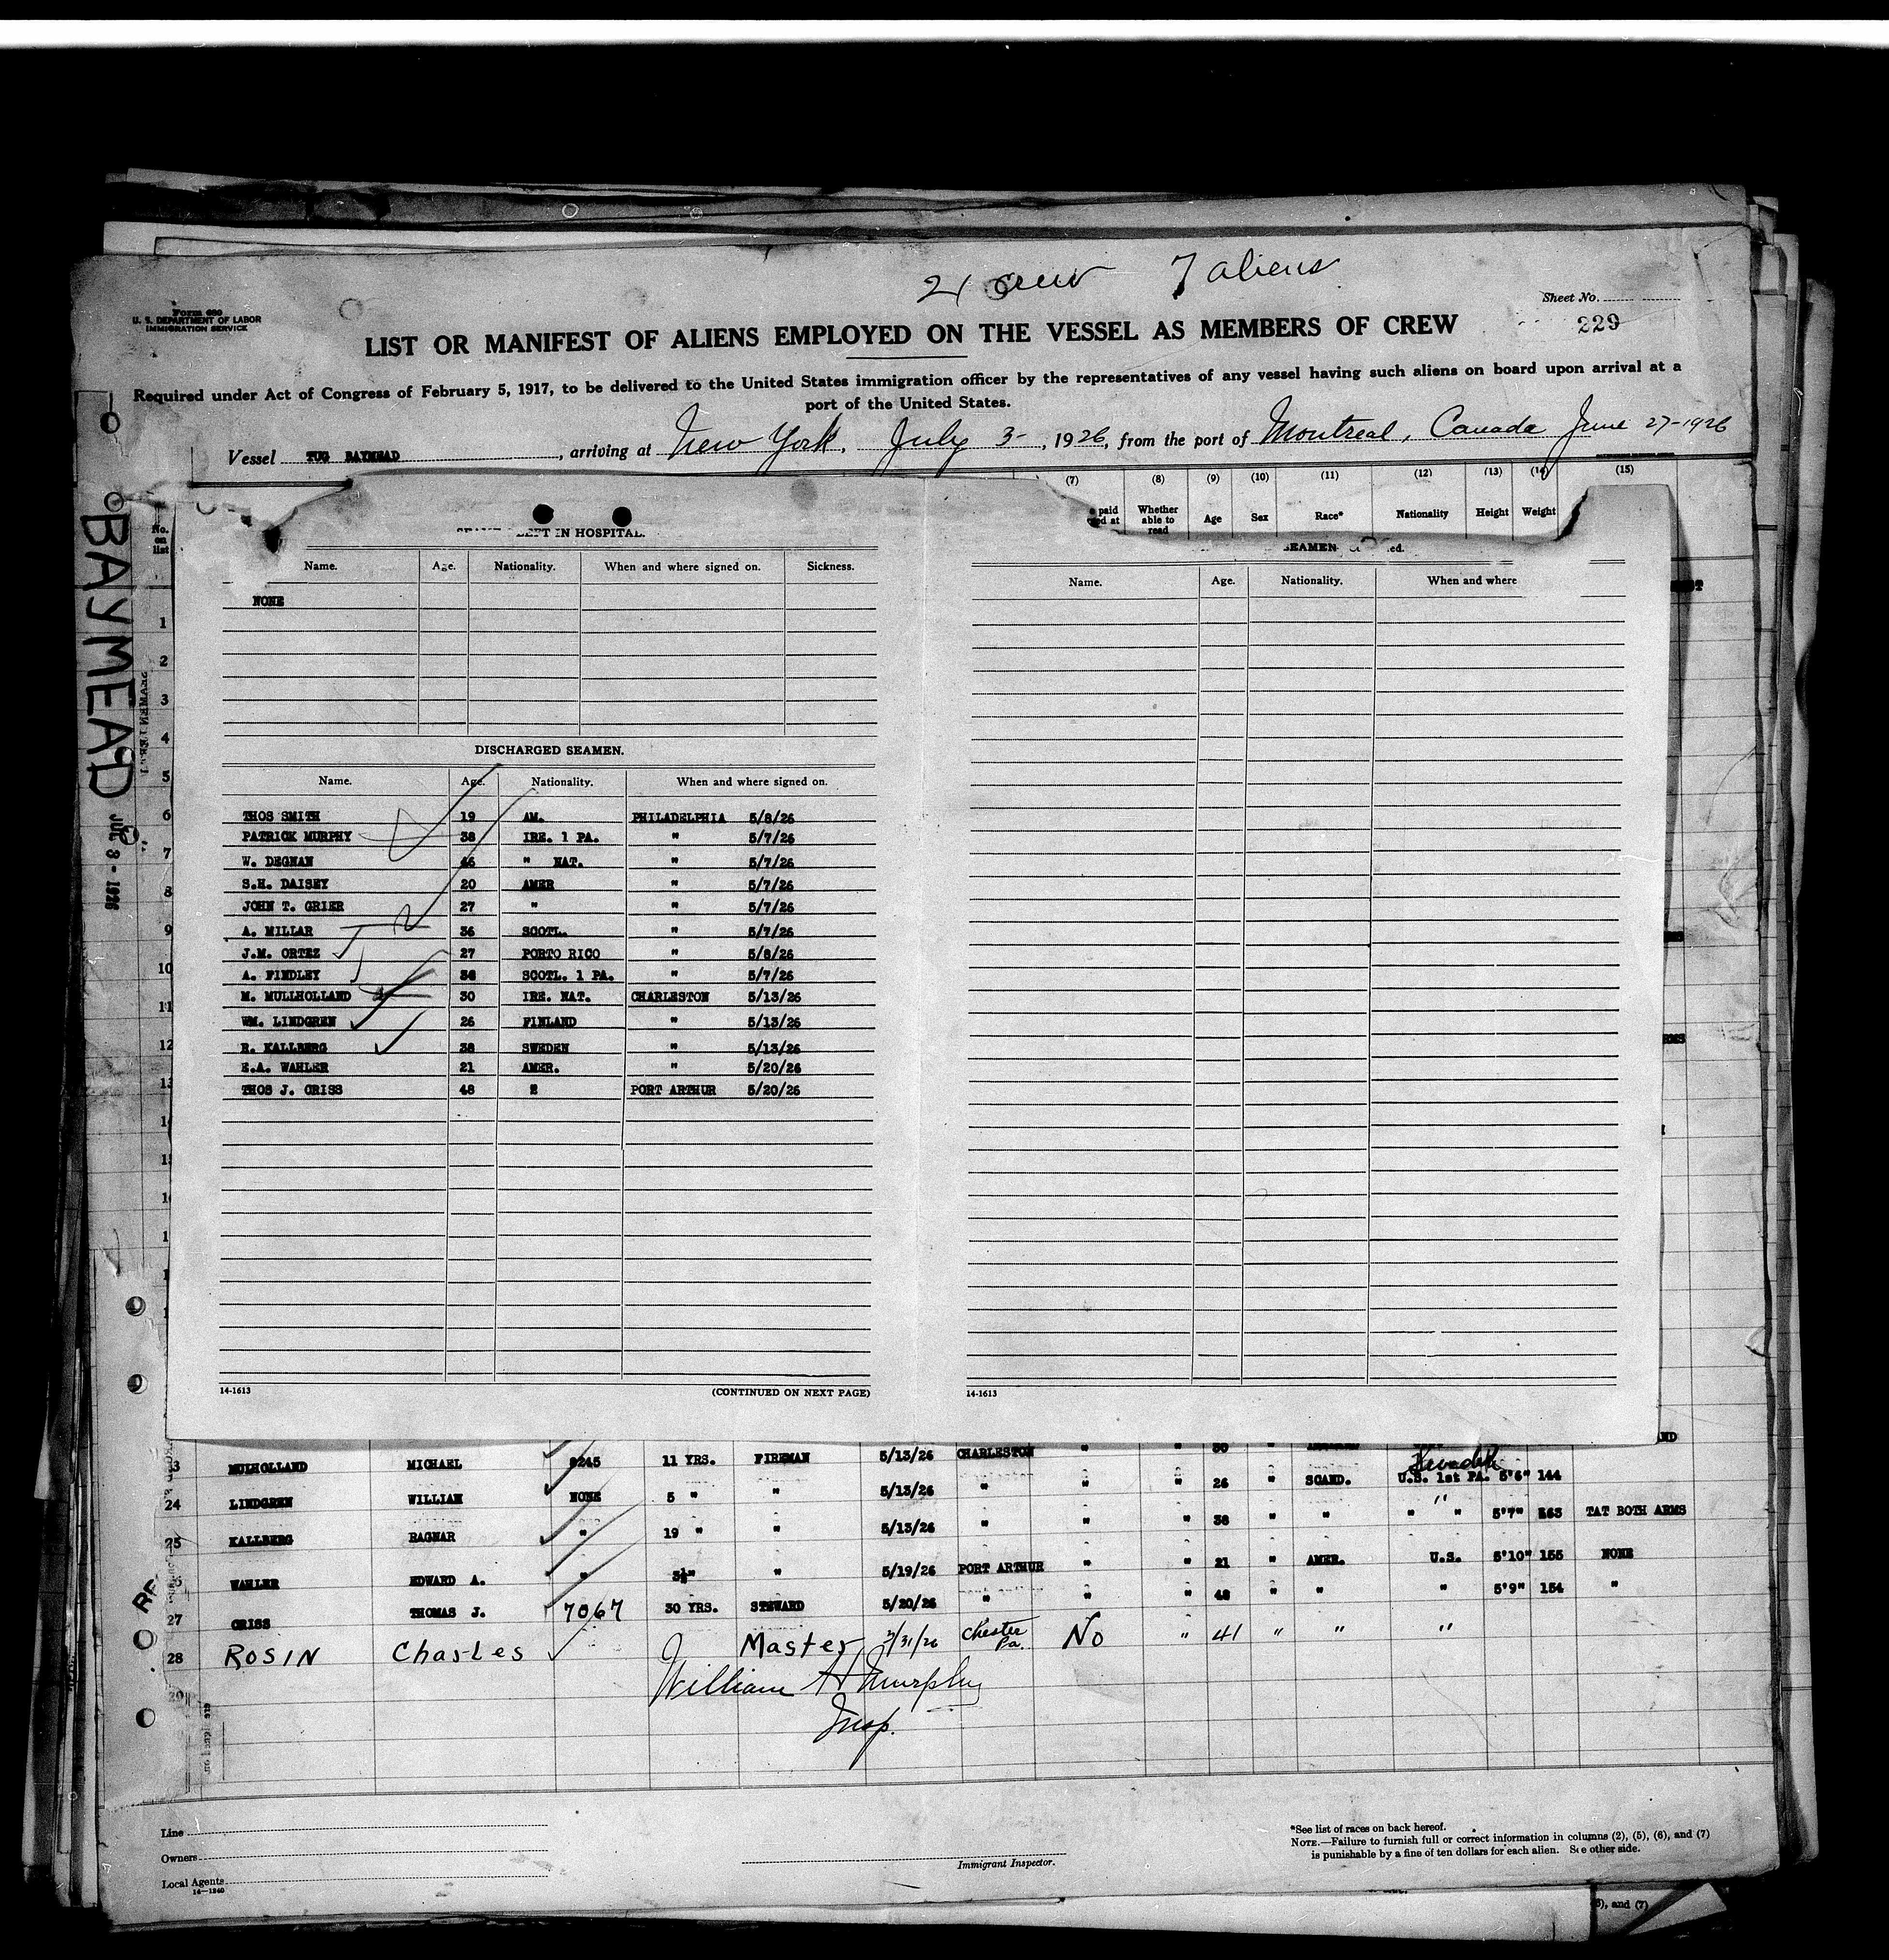 21 crew 7 aliens
Form 680
U. S. DEPARTMENT OF LABOR
IMMIGRATION SERVICE
Sheet No.
229
LIST OR MANIFEST OF ALIENS EMPLOYED ON THE VESSEL AS MEMBERS OF CREW
Required under Act of Congress of February 5, 1917, to be delivered to the United States immigration officer by the representatives of any vessel having such aliens on board upon arrival at a
port of the United States.
Vessel TUG BAYMEAD, arriving at New York, July 3-, 1926, from the port of Montreal, Canada June 27-1926
(7) (8) (9) (10) (11) (12) (13) (14) (15)
No. on list
paid at
Whether able to read
Age Sex Race* Nationality Height Weight
BAYMEAD
1926
IN HOSPITAL.
Name. Age. Nationality. When and where signed on. Sickness.
NONE
DISCHARGED SEAMEN.
Name. Age. Nationality. When and where signed on.
THOS SMITH 19 AM. PHILADELPHIA 5/8/26
PATRICK MURPHY 38 IRE. 1 PA. " 5/7/26
W. DEGNAN 46 " NAT. " 5/7/26
S.H. DAISEY 20 AMER " 5/7/26
JOHN T. GRIER 27 " " 5/7/26
A. MILLAR 36 SCOTL. " 5/7/26
J.M. ORTEZ 27 PORTO RICO " 5/8/26
A. FINDLEY 38 SCOTL. 1 PA. " 5/7/26
M. MULLHOLLAND 30 IRE. NAT. CHARLESTON 5/13/26
WM. LINDGREN 26 FINLAND " 5/13/26
R. KALLBERG 38 SWEDEN " 5/13/26
E.A. WAHLER 21 AMER. " 5/20/26
THOS J. CRISS 48 " PORT ARTHUR 5/20/26
14-1613 (CONTINUED ON NEXT PAGE)
SEAMEN
Name. Age. Nationality. When and where
14-1613
1
2
3
4
5
6
7
8
9
10
11
12
MULHOLLAND MICHAEL 8245 11 YRS. FIREMAN 5/13/26 CHARLESTON " " 30 "
24 LINDGREN WILLIAM NONE 5 " " 5/13/26 " " " 26 " SCAND. U.S. 1st PA. 5'6" 144
25 KALLBERG RAGNAR " 19 " " 5/13/26 " " " 38 " " " " 5'7" 163 TAT BOTH ARMS
WAHLER EDWARD A. " 3½" " 5/19/26 PORT ARTHUR " " 21 " AMER. U.S. 5'10" 155 NONE
27 CRISS THOMAS J. 7067 30 YRS. STEWARD 5/20/26 " " " 48 " " " 5'9" 154 "
28 ROSIN Charles Master /31/26 Chester Pa. No " 41 " " "
29 William H Murphy
Insp.
Line
Owners
Local Agents
14-1240
Immigrant Inspector.
*See list of races on back hereof.
NOTE.—Failure to furnish full or correct information in columns (2), (5), (6), and (7)
is punishable by a fine of ten dollars for each alien. See other side.
and (7)